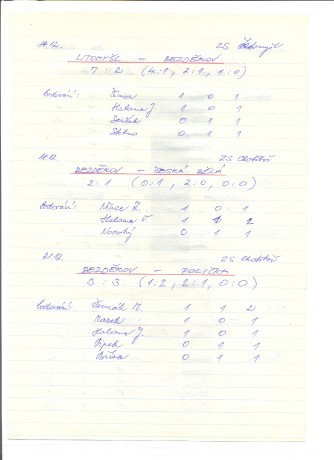 14.12. ZS Litomyšl
LITOMYŠL – BEZDĚKOV
7 : 2 (4:1, 2:1, 1:0)
bodování: 1 0 1
Halama J 1 0 1
0 1 1
0 1 1
ZS Chotěboř
BEZDĚKOV – ČESKÁ BĚLÁ
2:1 (0:1, 2:0, 0:0)
bodování: 1 0 1
Halama 1 1 2
Novotný 0 1 1
21.12. ZS Chotěboř
BEZDĚKOV – POLIČKA
3 : 3 (1:2, 2:1, 0:0)
bodování: Čermák M. 1 1 2
Marek 1 0 1
Halama J. 1 0 1
Pipek 0 1 1
0 1 1